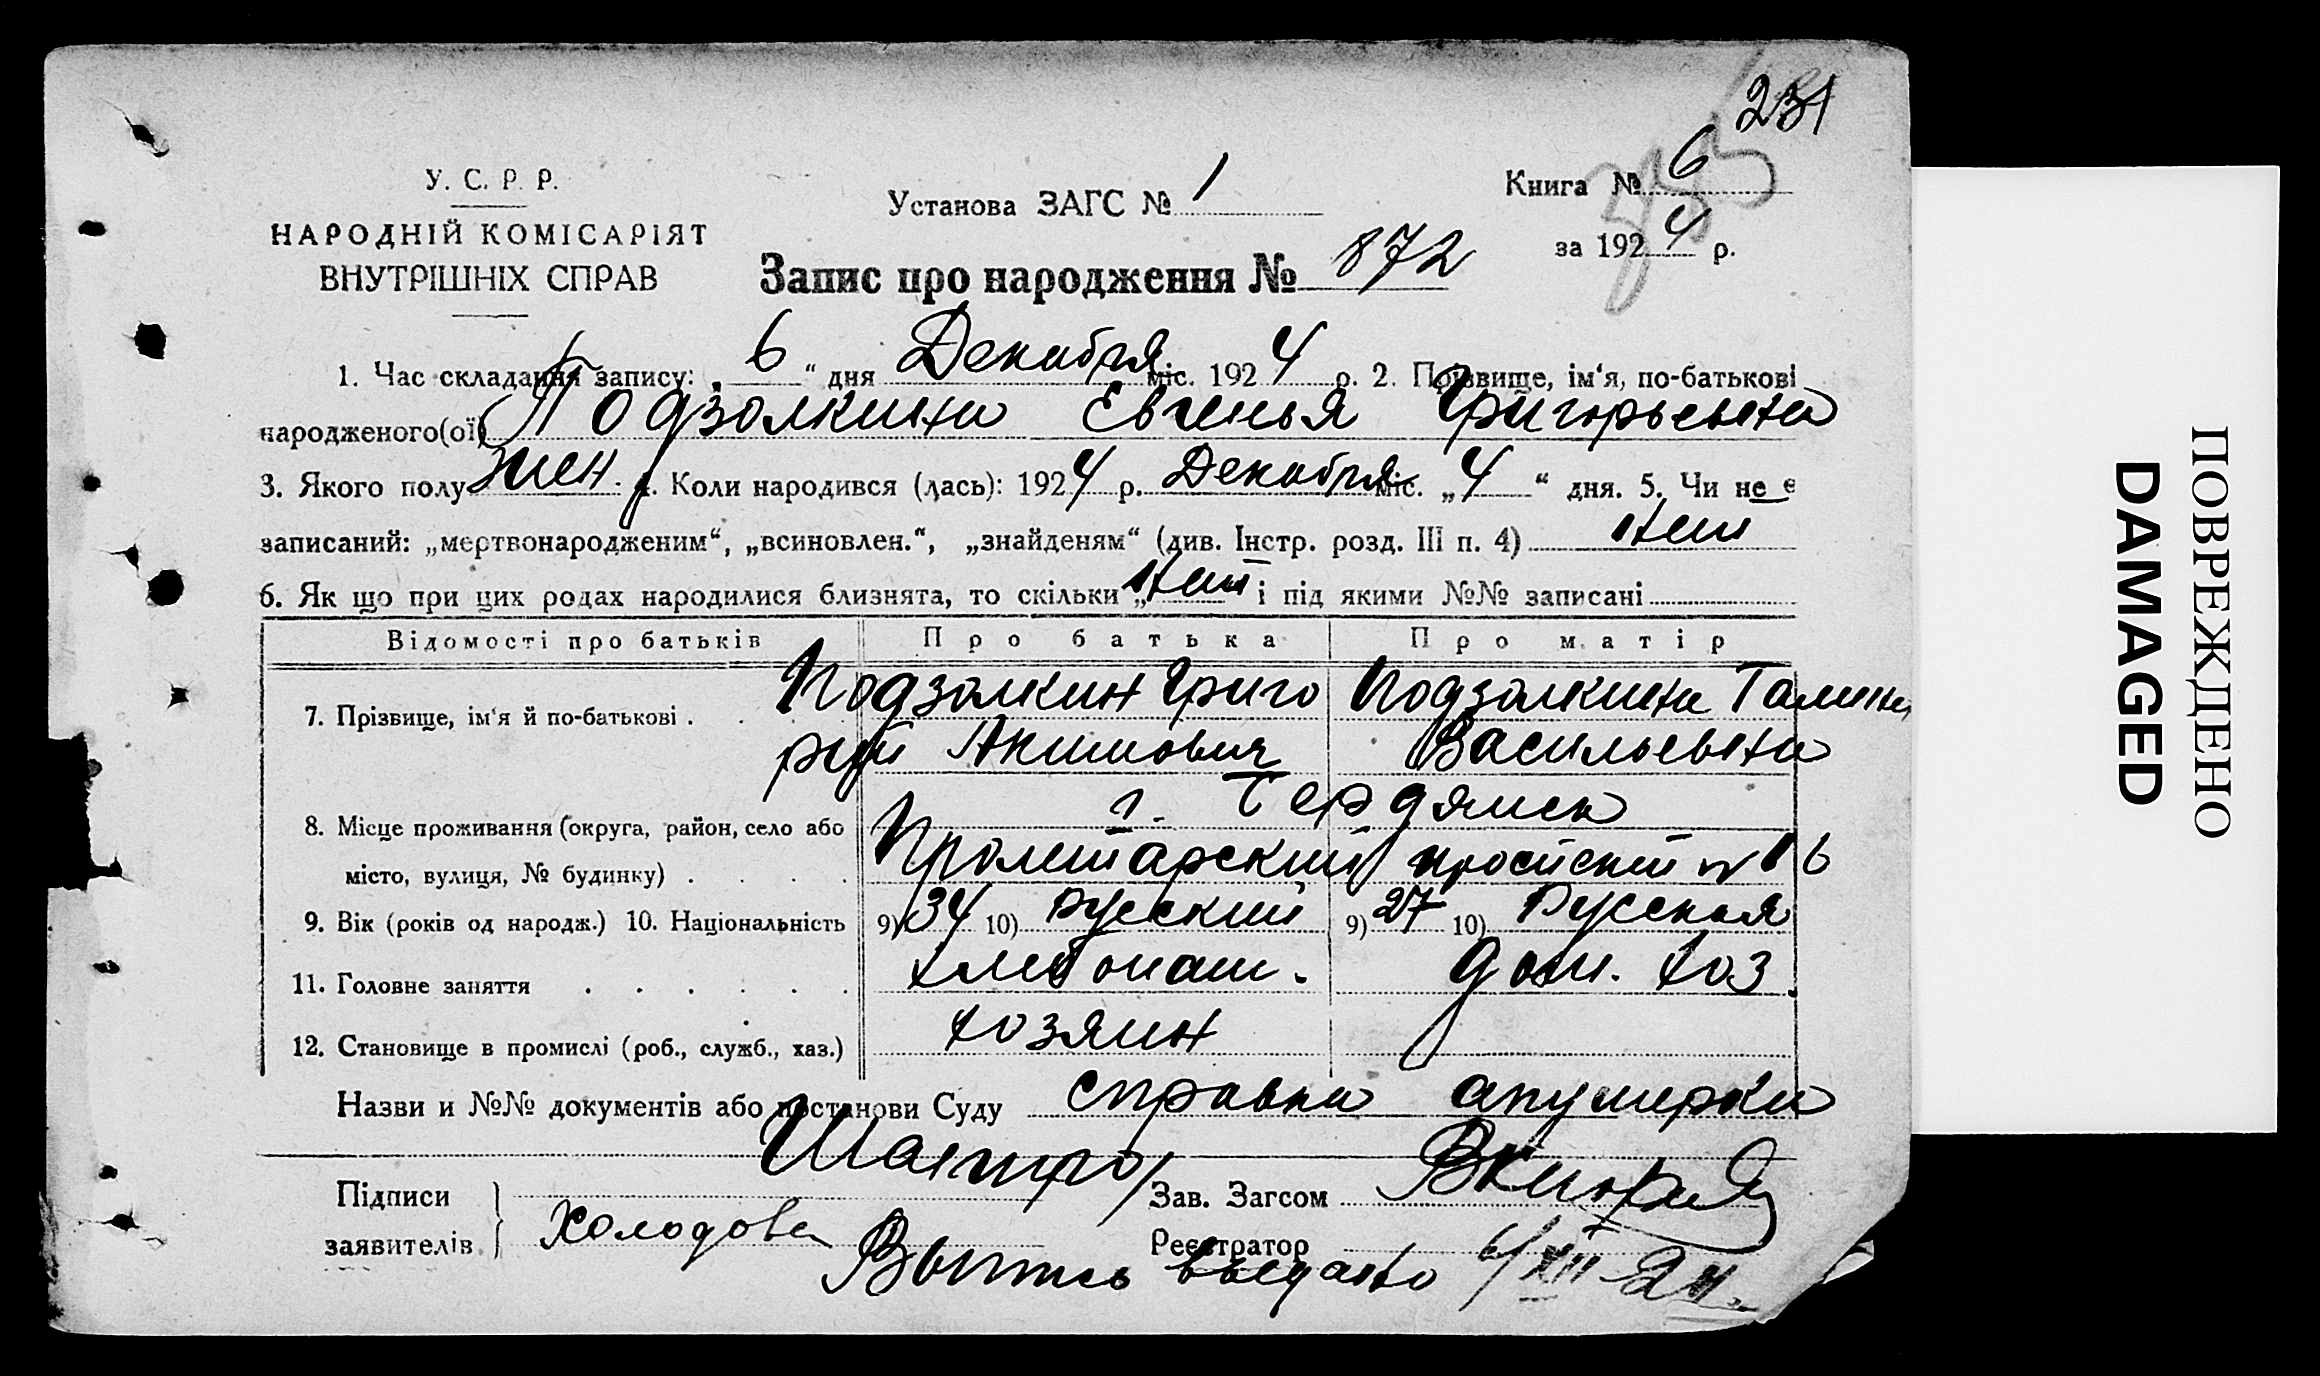 231
У. С. Р. Р.
НАРОДНІЙ КОМІСАРІЯТ
ВНУТРІШНІХ СПРАВ
Установа ЗАГС № 1
Книга № 6
за 1924 р.
Запис про народження № 872
1. Час складання запису: „6“ дня Декабря міс. 1924 р. 2. Прізвище, ім‘я, по-батькові
народженого(ої) Подзолкина Евгенья Григорьевна
3. Якого полу жен. 4. Коли народився (лась): 1924 р. Декабря міс. „4“ дня. 5. Чи не є
записаний: „мертвонародженим“, „всиновлен.“, „знайденям“ (див. Інстр. розд. III п. 4) нет
6. Як що при цих родах народилися близнята, то скільки „нет і під якими №№ записані
Відомості про батьків Про батька Про матір
7. Прізвище, ім‘я й по-батькові . Подзолкин Григо Подзолкина Галина
рий Акимович Васильевна
г. Бердянск
8. Місце проживання (округа, район, село або
місто, вулиця, № будинку) . . . . Пролетарский проспект № 16
9. Вік (років од народж.) 10. Національність 9) 34 10) русский 9) 27 10) Русская
11. Головне заняття . . . . . . хлебопаш. дом. хоз.
12. Становище в промислі (роб., служб., хаз.) хозяин
Назви и №№ документів або постанови Суду справка акушерки
Шапиро
Підписи Зав. Загсом
заявителів Холодова Реєстратор
Выпись выдано 6/XII-24.
ПОВРЕЖДЕНО
DAMAGED